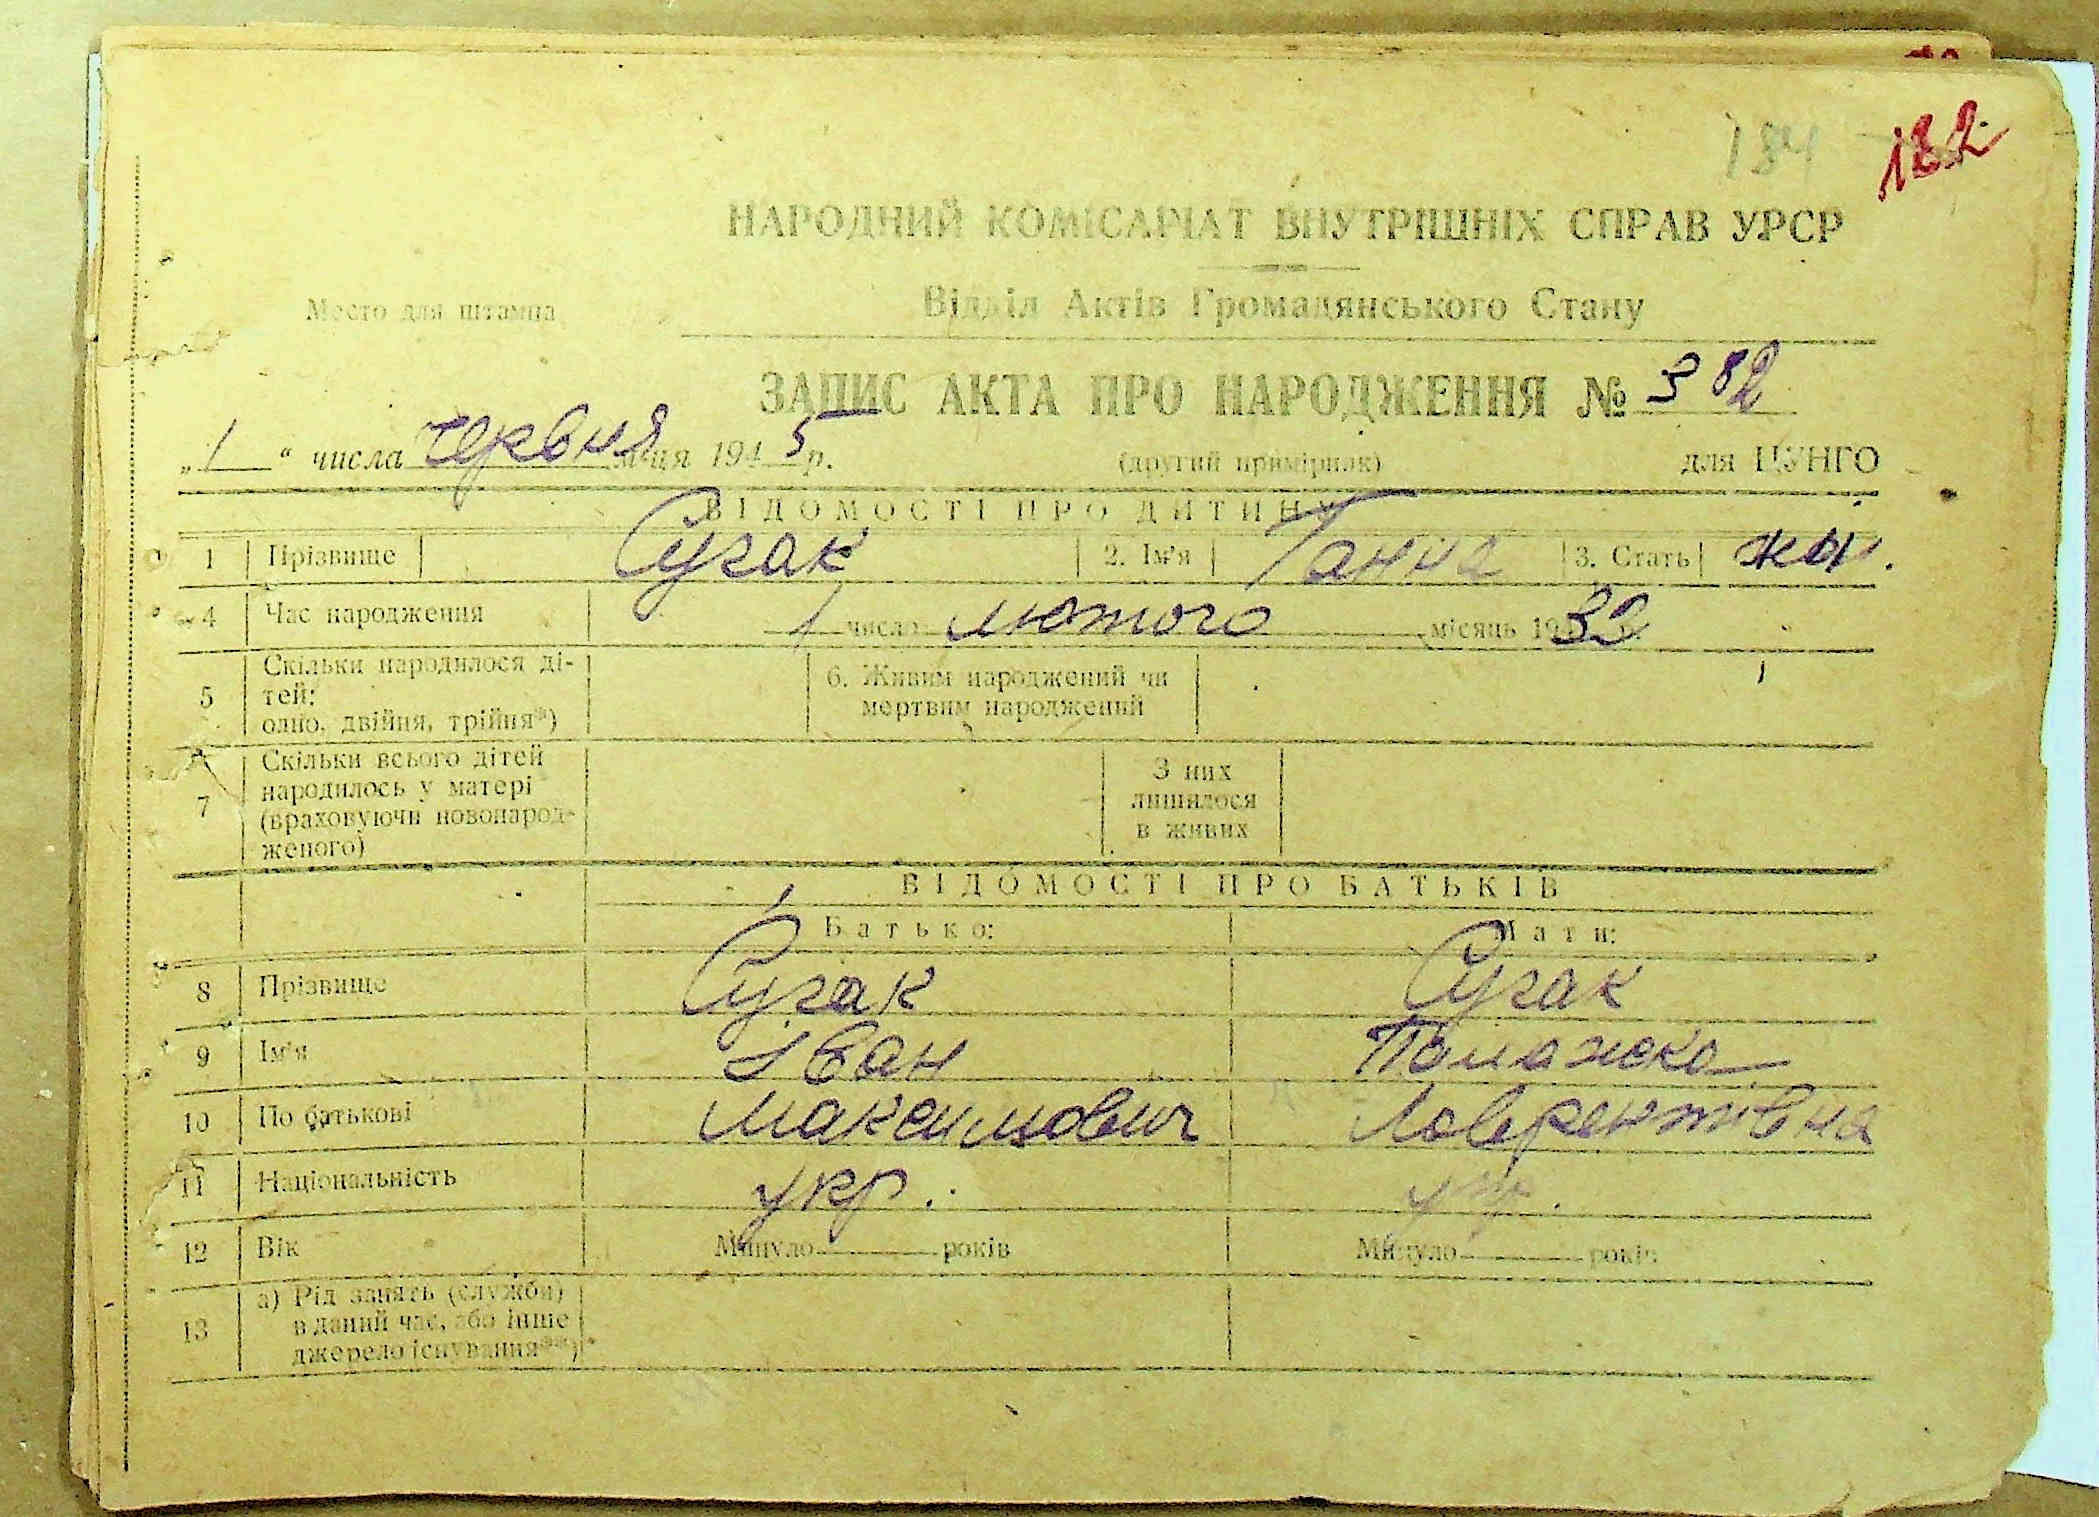 184 182
НАРОДНИЙ КОМІСАРІАТ ВНУТРІШНІХ СПРАВ УРСР
Место для штампа
Відділ Актів Громадянського Стану
ЗАПИС АКТА ПРО НАРОДЖЕННЯ № 382
„1“ числа червня м-ця 1945 р. (другий примірник) для ЦУНГО
ВІДОМОСТІ ПРО ДИТИНУ
1 Прізвище Сугак 2. Ім'я Ганна 3. Стать жін.
4 Час народження 1 число лютого місяць 1932
5 Скільки народилося дітей: одно, двійня, трійня*) 6. Живим народжений чи мертвим народжений
7 Скільки всього дітей народилось у матері (враховуючи новонародженого) З них лишилося в живих
ВІДОМОСТІ ПРО БАТЬКІВ
Батько: Мати:
8 Прізвище Сугак Сугак
9 Ім'я Іван
10 По батькові Максимович Лаврентівна
11 Національність укр. укр.
12 Вік Минуло років Минуло років
13 а) Рід занять (служби) в даний час, або інше джерело існування**)